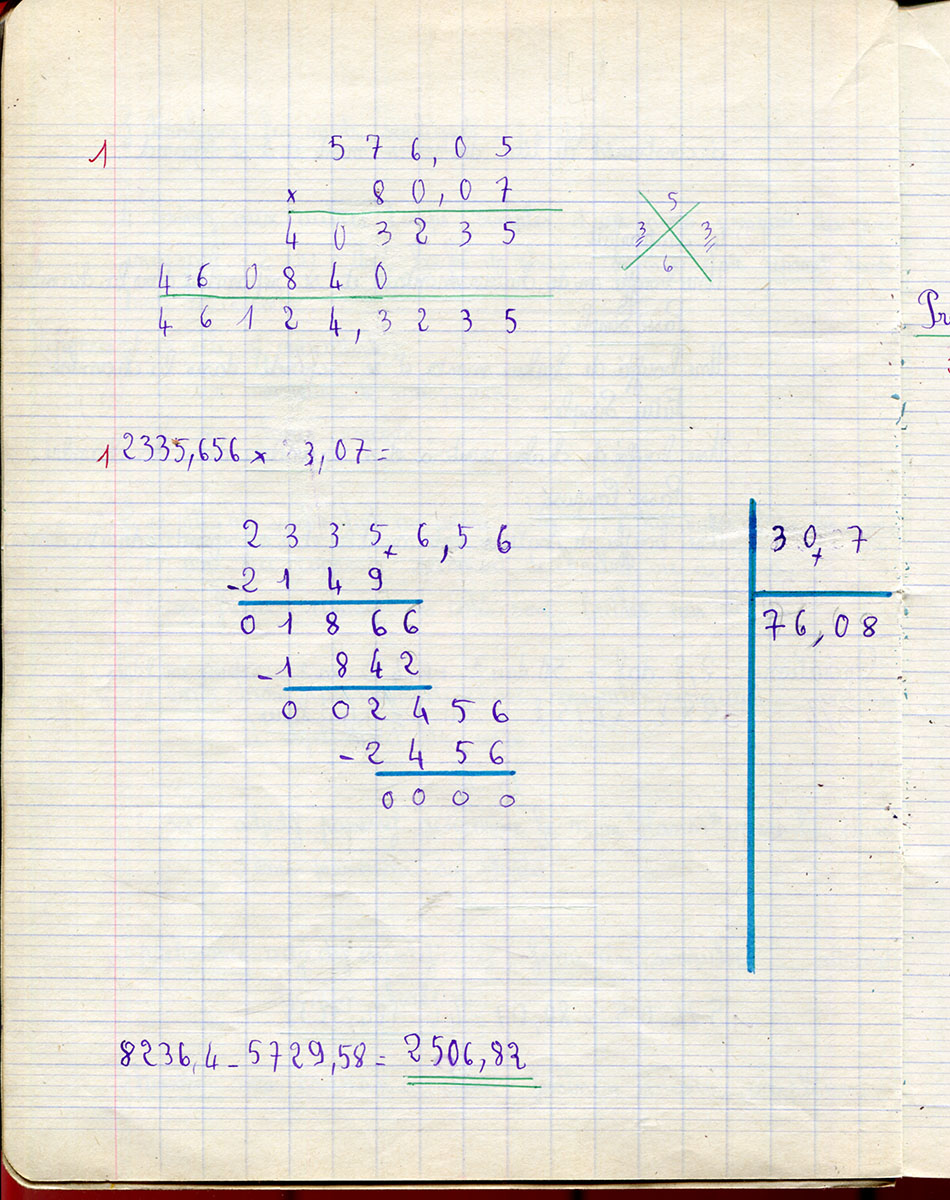 1
5 7 6, 0 5
x 8 0, 0 7
4 0 3 2 3 5
4 6 0 8 4 0
4 6 1 2 4, 3 2 3 5
5
3 3
6
Pr
1 2335,656 x 3,07 =
2 3 3 5, 6,5 6
3 0, 7
-2 1 4 9
0 1 8 6 6
76,08
-1 8 4 2
0 0 2 4 5 6
-2 4 5 6
0 0 0 0
8236,4 - 5729,58 = 2506,82